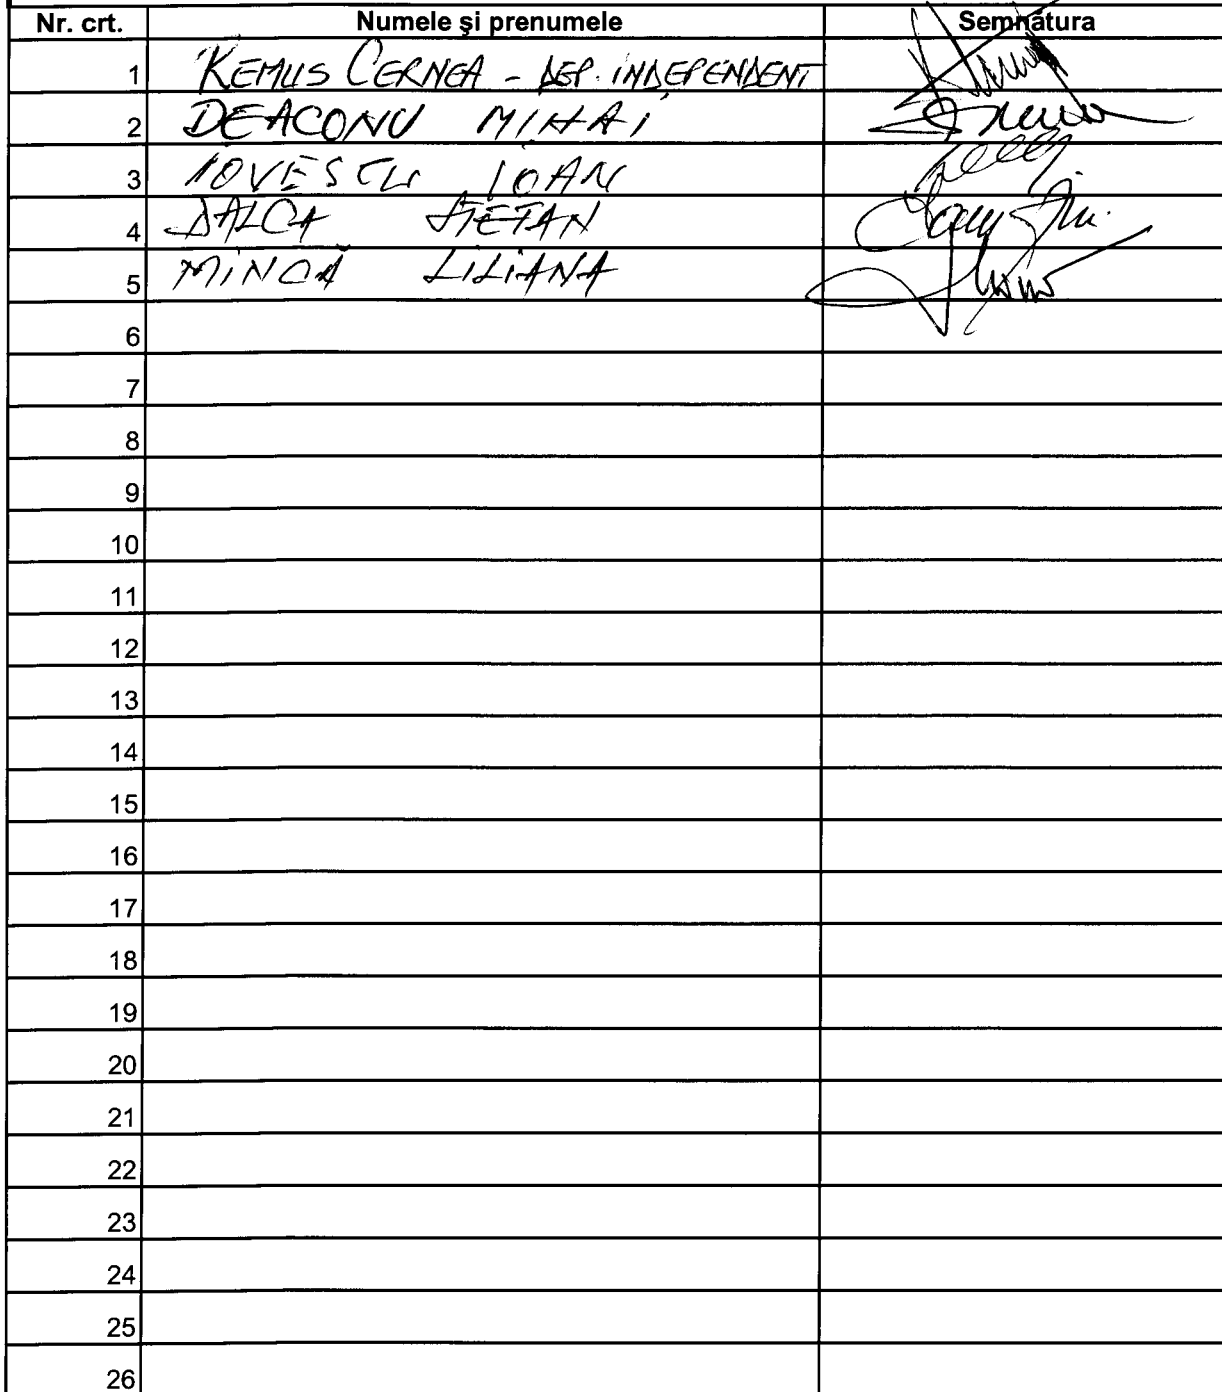 Nr. crt. Numele şi prenumele Semnătura
1 REMUS CERNEA - DEP. INDEPENDENT
2 DEACONU MIHAI
3 IOVESCU IOAN
4 DALCA ŞTEFAN
5 MINCĂ LILIANA
6
7
8
9
10
11
12
13
14
15
16
17
18
19
20
21
22
23
24
25
26